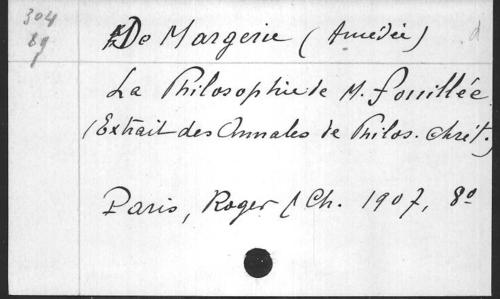 304
89
De Margerie (Amédée)
d
La Philosophie de M. Fouillée
(Extrait des Annales de Philos. chrét.)
Paris, Roger & Ch. 1907, 8º